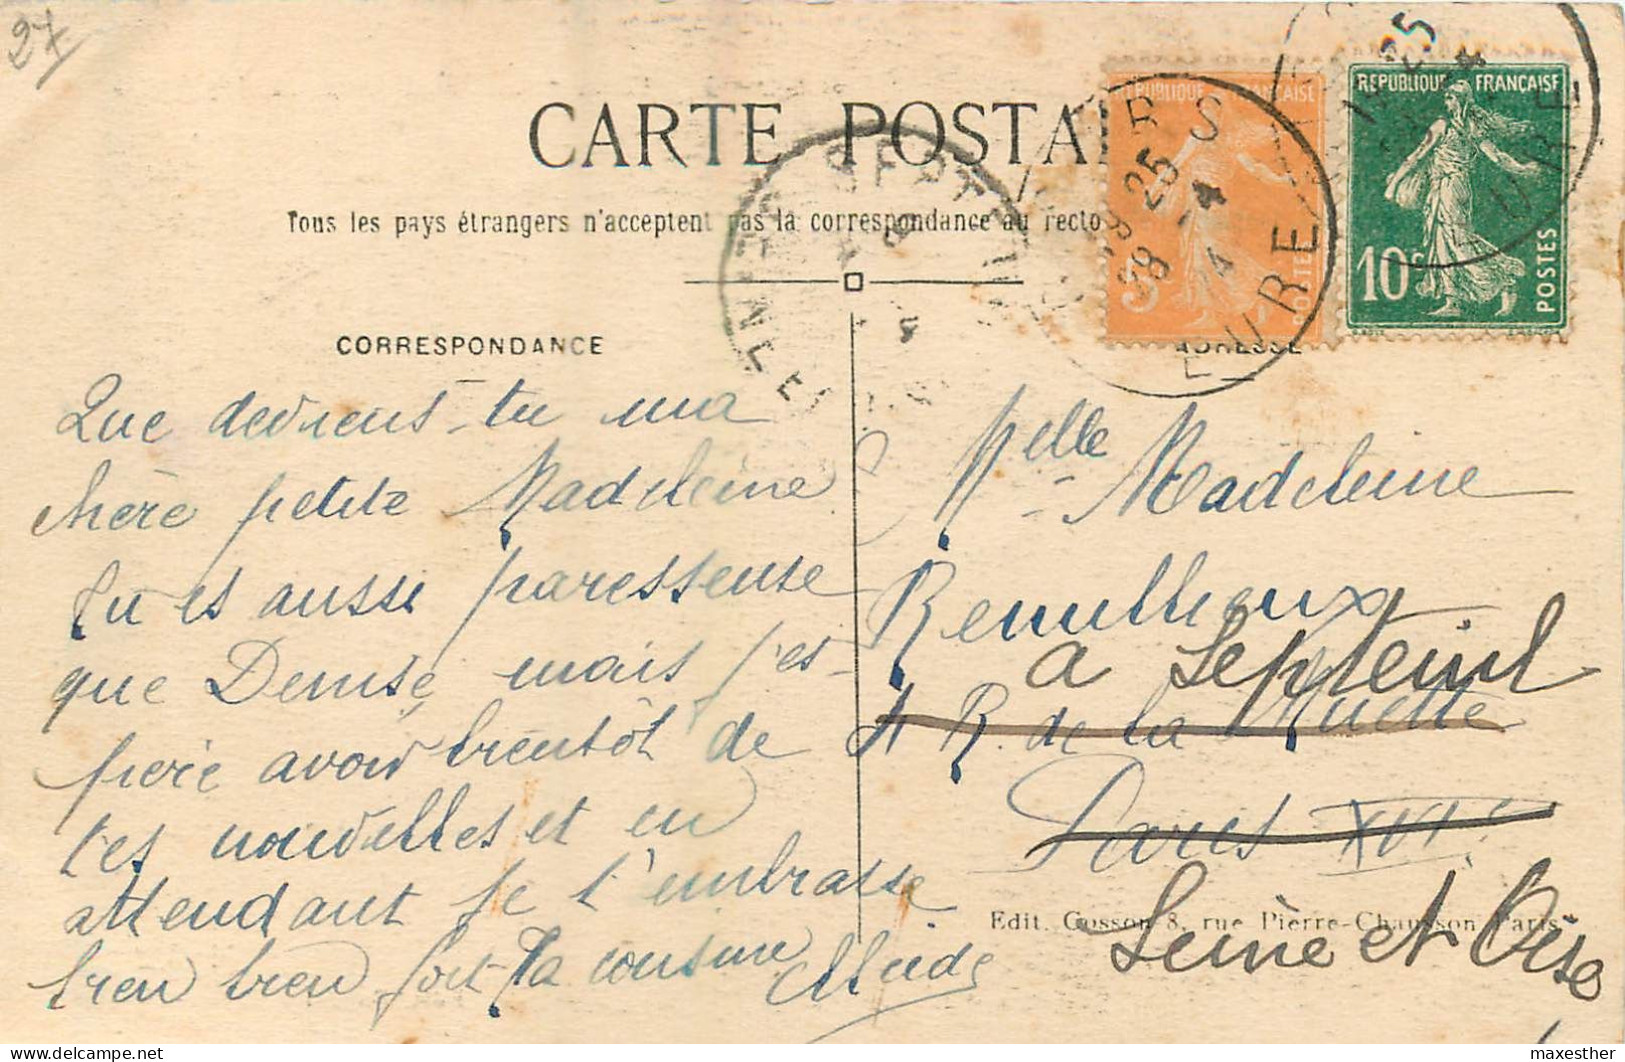 27
CARTE POSTA
Tous les pays étrangers n'acceptent pas la correspondance au recto
CORRESPONDANCE
Que deviens-tu ma
chère petite Madeleine
Tu es aussi paresseuse
que Denise, mais j'es-
père avoir bientôt de
tes nouvelles et en
attendant je t'embrasse
bien bien fort Ta cousine
RÉPUBLIQUE FRANÇAISE
5
POSTES
RÉPUBLIQUE FRANÇAISE
10c
POSTES
25
EURE
SEPT
ADRESSE
Melle Madeleine
Remillieux
a Septeuil
4 R. de la Muette
Paris XVIe
Edit. Gosson 8, rue Pierre-Chausson Paris
Seine et Oise
maxesther